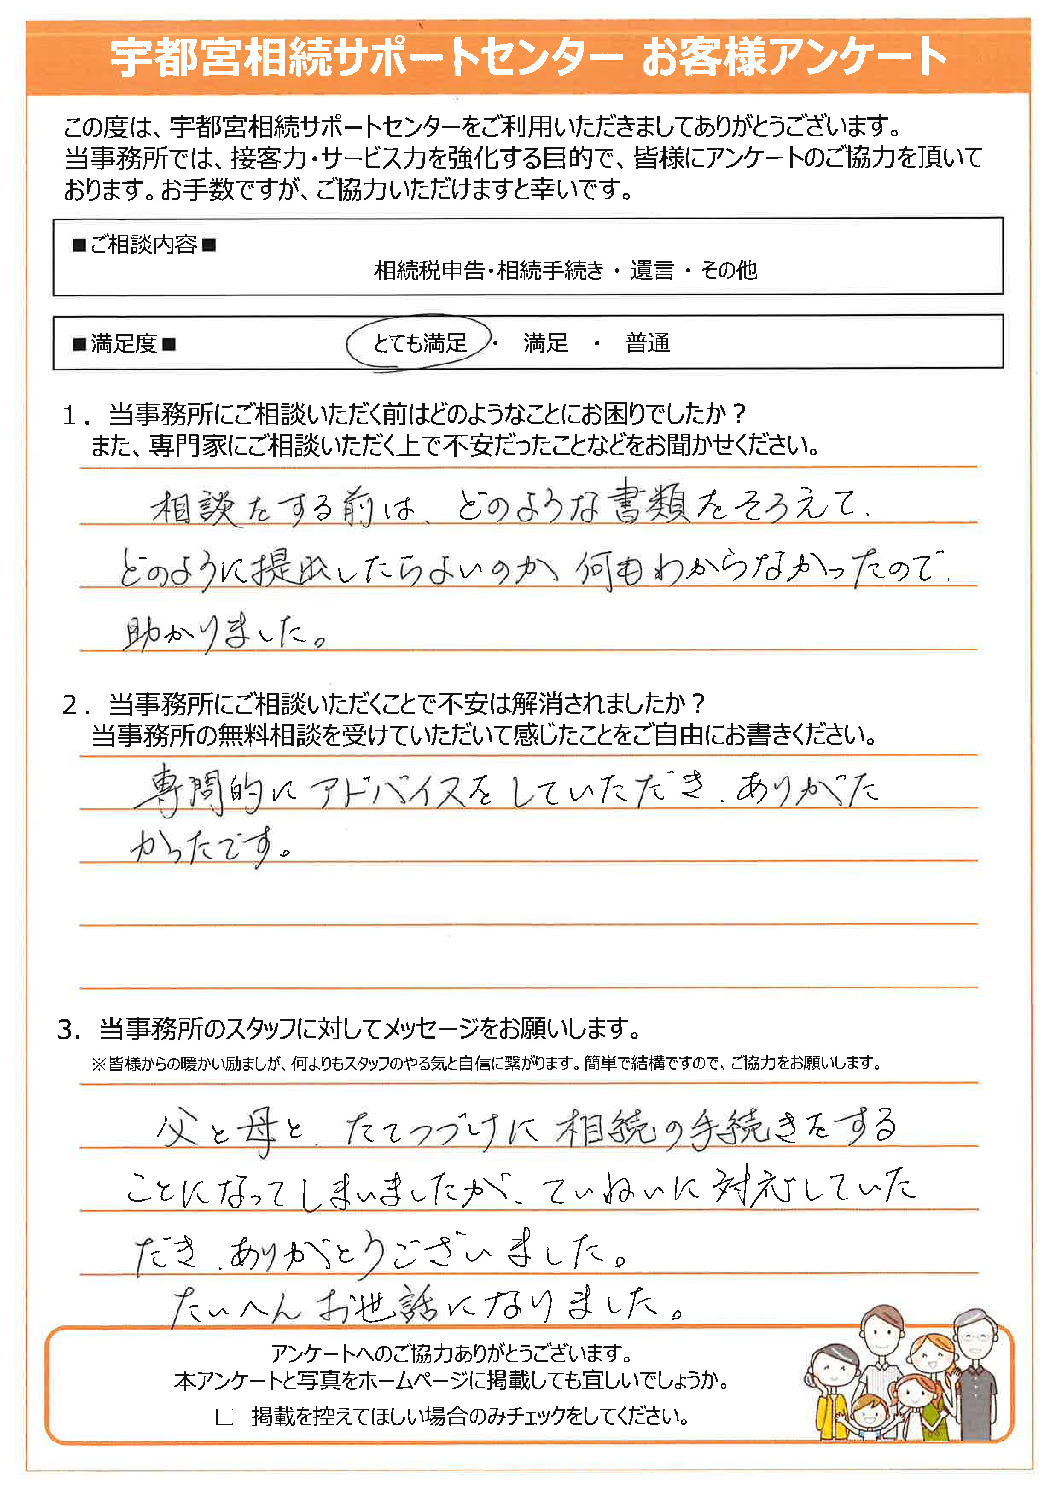 宇都宮相続サポートセンター お客様アンケート
この度は、宇都宮相続サポートセンターをご利用いただきましてありがとうございます。
当事務所では、接客力・サービス力を強化する目的で、皆様にアンケートのご協力を頂いて
おります。お手数ですが、ご協力いただけますと幸いです。
■ご相談内容■
相続税申告・相続手続き ・ 遺言 ・ その他
■満足度■ とても満足 ・ 満足 ・ 普通
１．当事務所にご相談いただく前はどのようなことにお困りでしたか？
また、専門家にご相談いただく上で不安だったことなどをお聞かせください。
相談をする前は、どのような書類をそろえて、
どのように提出したらよいのか、何もわからなかったので、
助かりました。
２．当事務所にご相談いただくことで不安は解消されましたか？
当事務所の無料相談を受けていただいて感じたことをご自由にお書きください。
専門的にアドバイスをしていただき、ありがた
かったです。
3．当事務所のスタッフに対してメッセージをお願いします。
※皆様からの暖かい励ましが、何よりもスタッフのやる気と自信に繋がります。簡単で結構ですので、ご協力をお願いします。
父と母と、たてつづけに相続の手続きをする
ことになってしまいましたが、ていねいに対応していた
だき、ありがとうございました。
たいへんお世話になりました。
アンケートへのご協力ありがとうございます。
本アンケートと写真をホームページに掲載しても宜しいでしょうか。
□ 掲載を控えてほしい場合のみチェックをしてください。